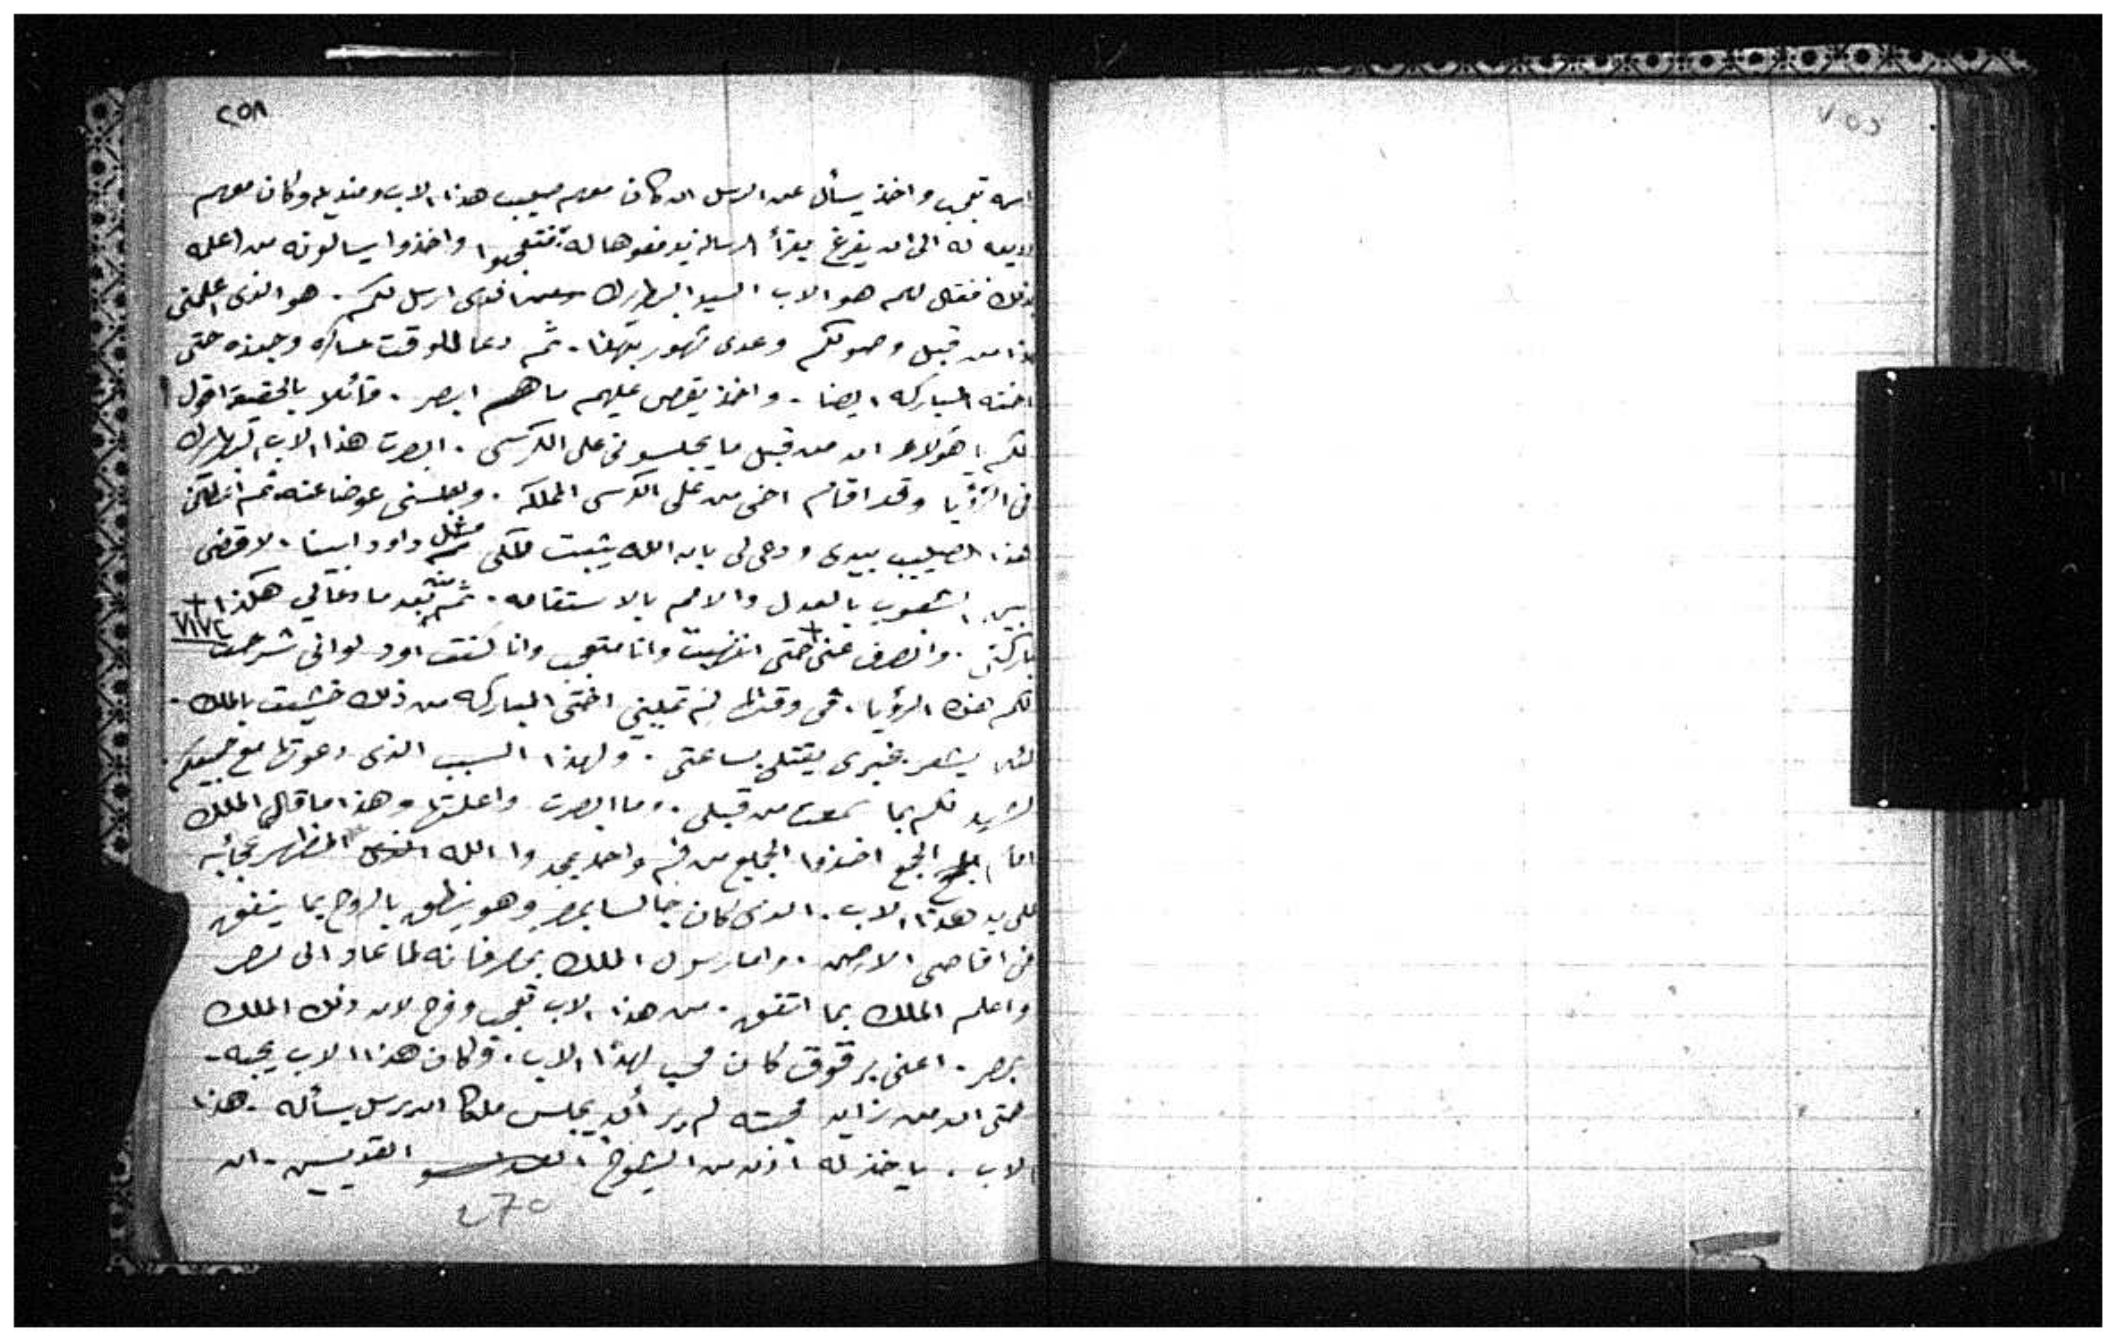 ٢٥٨
اسمه تعجب واخذ يسأل عن الرسل ان كان معهم صليب هذا الاب ومنديله وكان معهم
وديعه له الى ان يفرغ يقرأ الرسالة يدفعوها له فتعجبوا واخذوا يسالونه من اعلمه
بذلك فقال لهم هو الاب السيد البطريرك الذى ارسلكم. هو الذى اعلمنى
هذا من قبل وصولكم وعدى شهور بتهلنا. ثم دعا للوقت عساكره وجنده حتى
اخته المباركه ايضا. واخذ يقص عليهم ما هو ابصر. قائلا بالحقيقة اقول
لكم يا هؤلاء ان من قبل ما يجلسونى على الكرسى. ابصرت هذا الاب البطريرك
فى الرؤيا وقد اقام اخى من على الكرسى المملكه. وجلسنى عوضا عنه ثم اعطانى
هذا الصليب بيدى ودعى لى بان الله يثبت ملكى مثل داود ابينا. لاقضى
بين الشعوب بالعدل والامم بالاستقامه. ثم بعد ما دعالي هكذا
باركنى. وانصرف عنى حتى انتهيت وانا متعجب وانا كنت اود لوانى شرحت
لكم هذه الرؤيا. فى وقتها لم تمكننى اختى المباركه من ذلك خشيت بالملك.
لئلا يشعر بخبرى يقتلى بساعتى. ولهذا السبب الذى دعوتها مع جميعكم
لتشهد لكم بما سمعت من قبلى. وما ابصرت واعلمتها وهذا ما قال الملك
اما الجمع اخذوا الجميع من فم واحد يمجدوا الله المظهر عجائبه
على يد هذا الاب. الذى كان جالسا بمصر وهو ينطق بالروح بما يتفق
فى اقاصى الارض. واما رسول الملك بمصر فانه لما عاد الى مصر
واعلم الملك بما اتفق. من هذا الاب تعجب وفرح لان ذلك الملك
بمصر. اعنى برقوق كان محب لهذا الاب. وكان هذا الاب يحبه.
حتى ان من زايد محبته لم يرد أن يجلس ملكا ان يرسل يسأله. هذا
الاب. ياخذ له اذن من الشيوخ القديسين. ان
٢٦٥